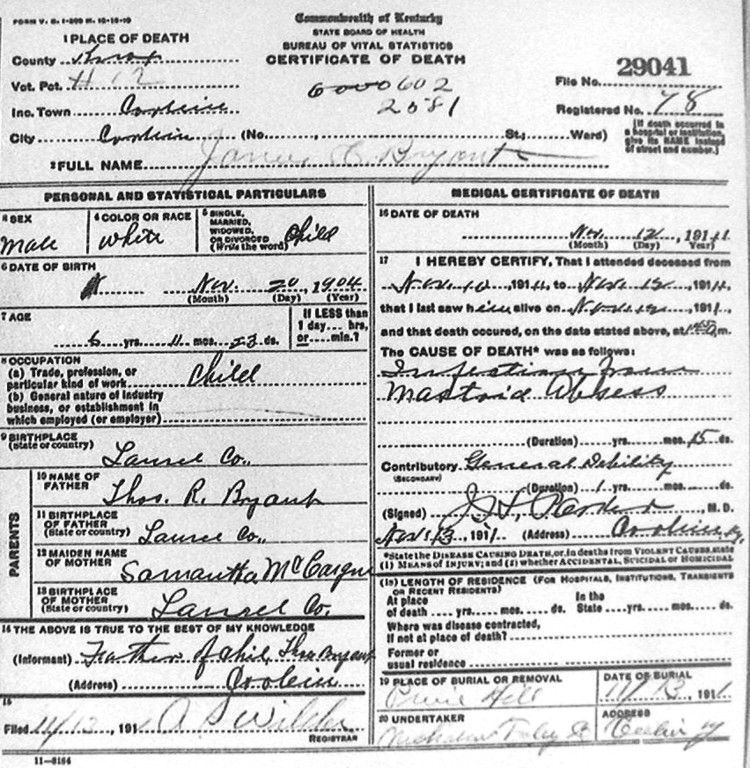 FORM V. S. 1-200 M. 12-16-10
Commonwealth of Kentucky
STATE BOARD OF HEALTH
BUREAU OF VITAL STATISTICS
CERTIFICATE OF DEATH
1 PLACE OF DEATH
County Knox
Vot. Pct. # 12
Inc. Town Corbin
City Corbin (No. St.; Ward)
6000602
2581
File No. 29041
Registered No. 78
(If death occurred in a hospital or institution, give its NAME instead of street and number.)
2 FULL NAME James C Bryant
PERSONAL AND STATISTICAL PARTICULARS
3 SEX
Male
4 COLOR OR RACE
White
5 SINGLE, MARRIED, WIDOWED, OR DIVORCED (Write the word) Child
6 DATE OF BIRTH
Nov. 20, 1904
(Month) (Day) (Year)
7 AGE
6 yrs. 11 mos. 23 ds.
If LESS than 1 day... hrs, or... min.?
8 OCCUPATION
(a) Trade, profession, or particular kind of work Child
(b) General nature of industry business, or establishment in which employed (or employer)
9 BIRTHPLACE
(State or country)
Laurel Co.,
PARENTS
10 NAME OF FATHER
Thos. R. Bryant
11 BIRTHPLACE OF FATHER
(State or country) Laurel Co.,
12 MAIDEN NAME OF MOTHER
Samantha
13 BIRTHPLACE OF MOTHER
(State or country) Laurel Co.
14 THE ABOVE IS TRUE TO THE BEST OF MY KNOWLEDGE
(Informant) Father of chil Thos Bryant
(Address) Corbin
15
Filed 11/13, 191 A
REGISTRAR
11-8164
MEDICAL CERTIFICATE OF DEATH
16 DATE OF DEATH
Nov. 12, 1911
(Month) (Day) (Year)
17 I HEREBY CERTIFY, That I attended deceased from
Nov. 10, 1911, to Nov. 12, 1911,
that I last saw him alive on Nov. 12, 1911,
and that death occured, on the date stated above, at m.
The CAUSE OF DEATH* was as follows:
Infection from
Mastoid Absess
(Duration) yrs. mos. 15 ds.
Contributory General Debility
(SECONDARY)
(Duration) 1 yrs. mos. ds.
(Signed) M. D.
Nov 13, 1911 (Address) Corbin Ky.
*State the DISEASE CAUSING DEATH, or, in deaths from VIOLENT CAUSES, state
(1) MEANS OF INJURY; and (2) whether ACCIDENTAL, SUICIDAL or HOMICIDAL
(18) LENGTH OF RESIDENCE (FOR HOSPITALS, INSTITUTIONS, TRANSIENTS OR RECENT RESIDENTS)
At place of death yrs. mos. ds. In the State yrs. mos. ds.
Where was disease contracted,
If not at place of death?
Former or
usual residence
19 PLACE OF BURIAL OR REMOVAL
Hill
DATE OF BURIAL
11/13, 1911
20 UNDERTAKER
ADDRESS